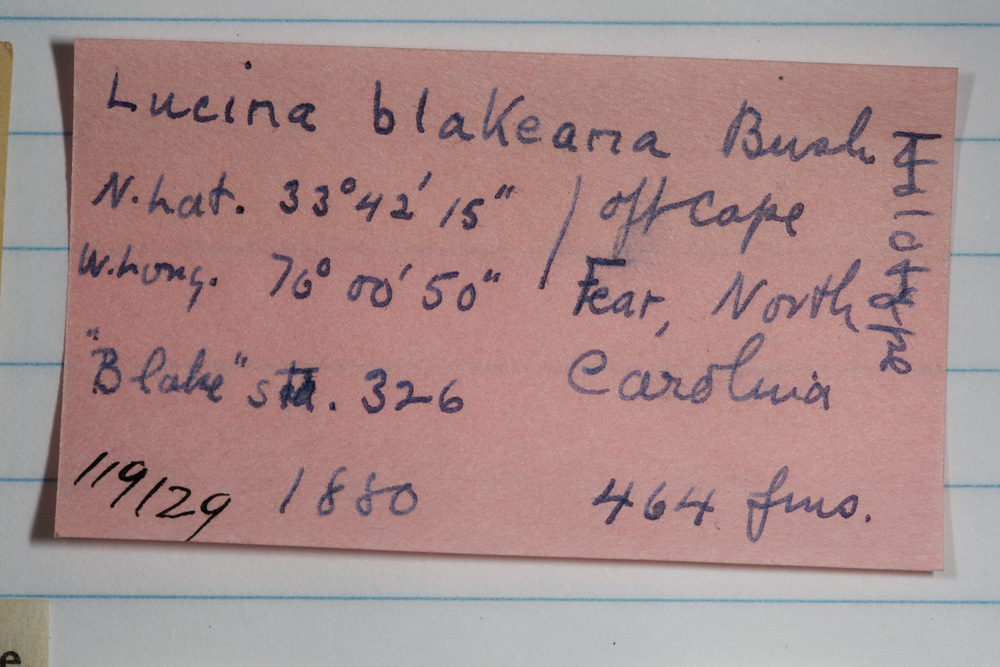 Lucina blakeana Bush
N. Lat. 33° 42' 15" / off Cape
W. Long. 76° 00' 50" Fear, North
"Blake" sta. 326 Carolina
119129 1880 464 fms.
e